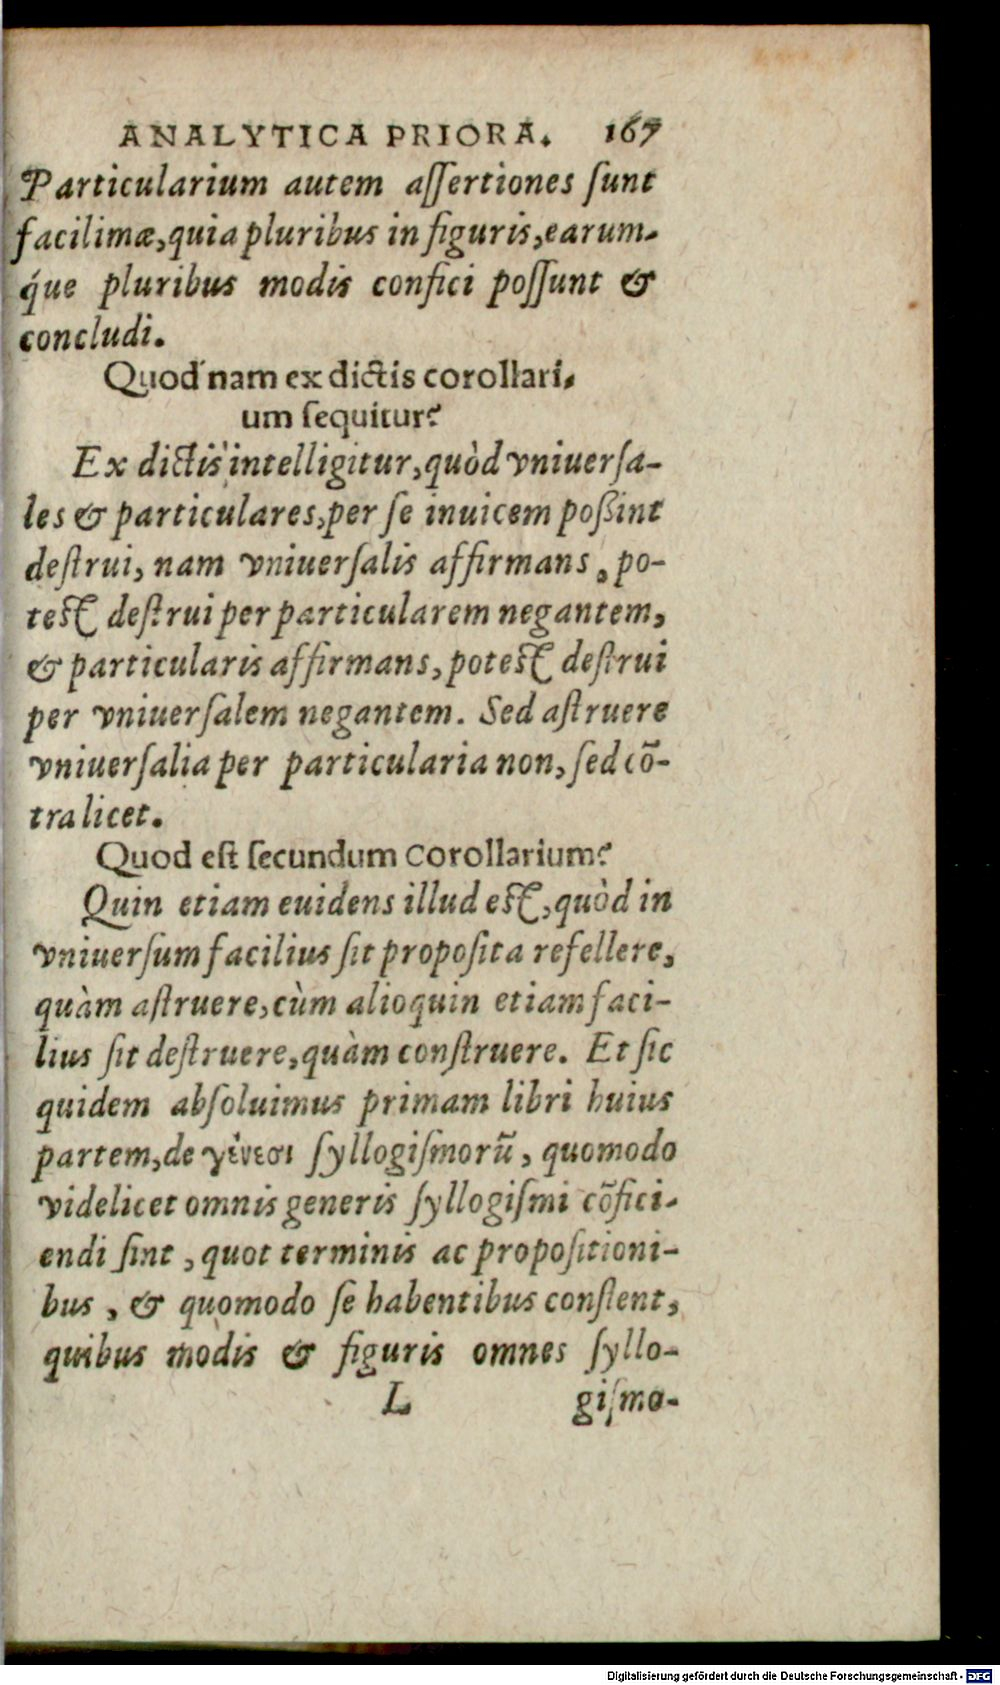 ANALYTICA PRIORA. 167
Particularium autem aſſertiones ſunt
facilimæ, quia pluribus in figuris, earum-
q́ue pluribus modis confici poſſunt &
concludi.
Quod nam ex dictis corollari-
um ſequitur?
Ex dictis intelligitur, quòd vniuerſa-
les & particulares, per ſe inuicem poßint
deſtrui, nam vniuerſalis affirmans, po-
teſt deſtrui per particularem negantem,
& particularis affirmans, poteſt deſtrui
per vniuerſalem negantem. Sed aſtruere
vniuerſalia per particularia non, ſed cō-
tra licet.
Quod eſt ſecundum Corollarium?
Quin etiam euidens illud eſt, quòd in
vniuerſum facilius ſit propoſita refellere,
quàm aſtruere, cùm alioquin etiam faci-
lius ſit deſtruere, quàm conſtruere. Et ſic
quidem abſoluimus primam libri huius
partem, de γένεσι ſyllogiſmorū, quomodo
videlicet omnis generis ſyllogiſmi cōfici-
endi ſint, quot terminis ac propoſitioni-
bus, & quomodo ſe habentibus conſtent,
quibus modis & figuris omnes ſyllo-
L giſmo-
Digitalisierung gefördert durch die Deutsche Forschungsgemeinschaft - DFG